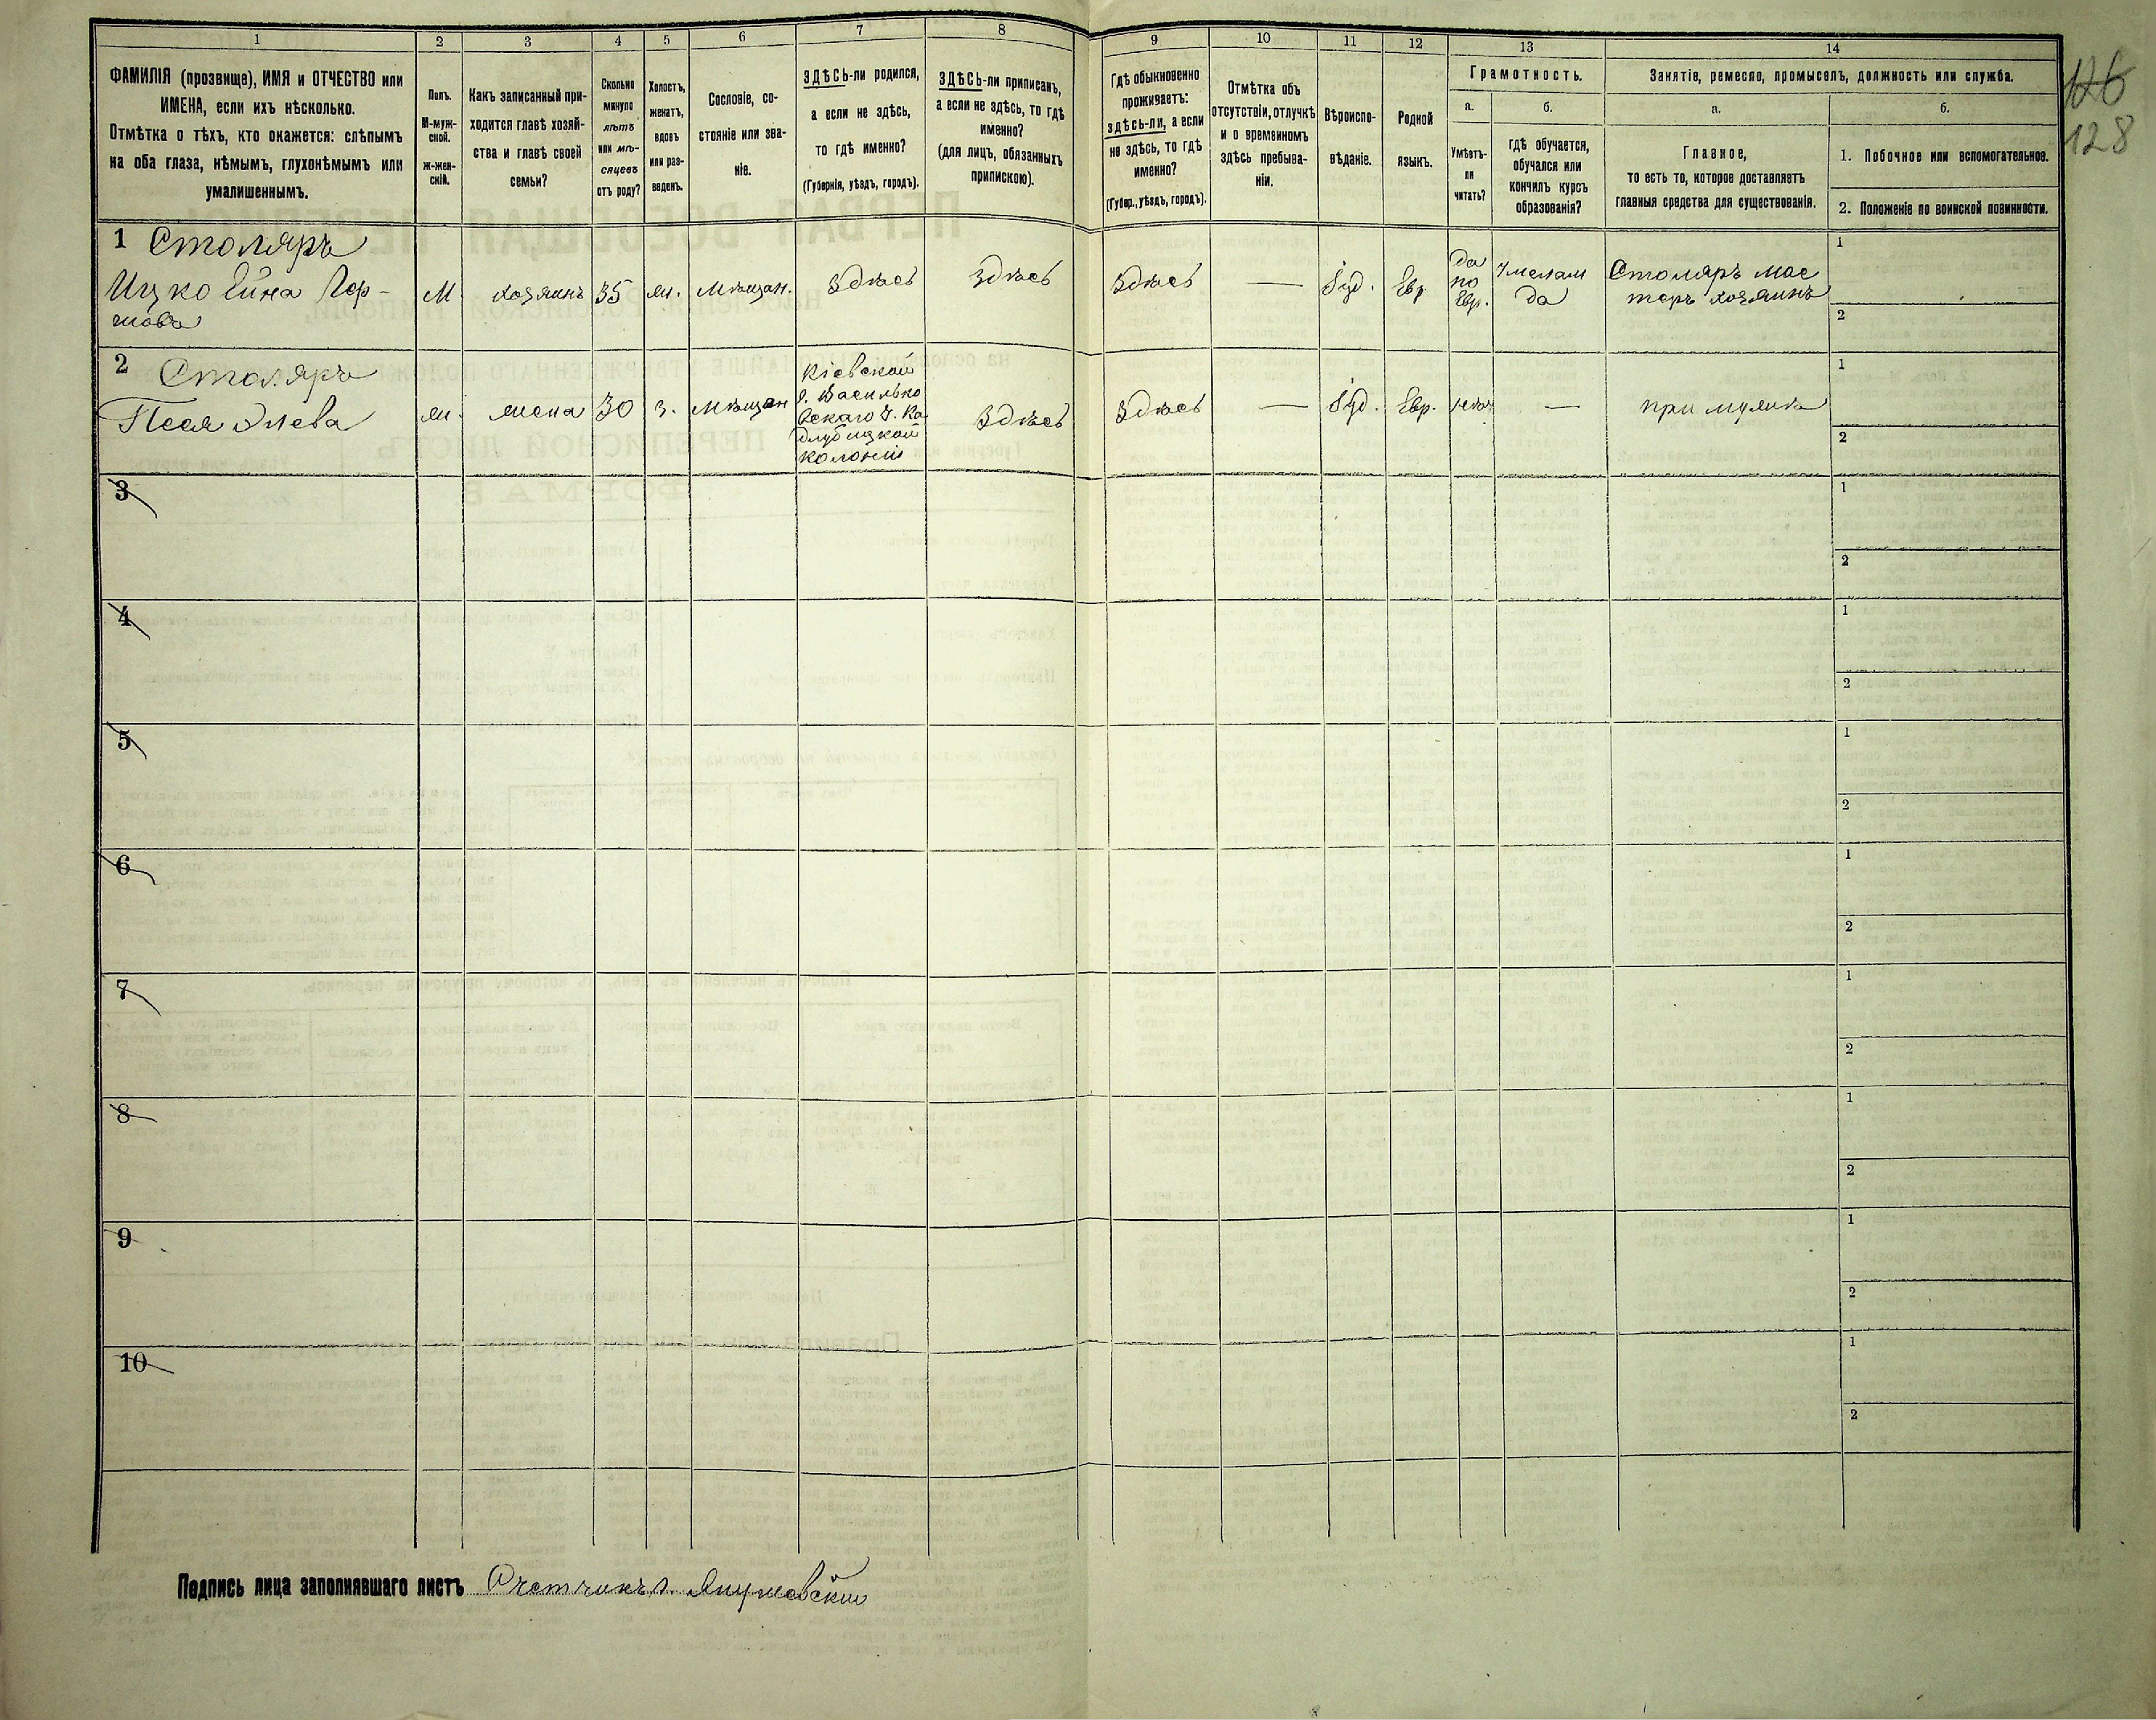 1
2
3
4
5
6
7
8
9
10
11
12
13
14
ФАМИЛІЯ (прозвище), ИМЯ и ОТЧЕСТВО или
ИМЕНА, если ихъ нѣсколько.
Отмѣтка о тѣхъ, кто окажется: слѣпымъ
на оба глаза, нѣмымъ, глухонѣмымъ или
умалишеннымъ.
Полъ.
М-муж-
ской.
Ж-жен-
скій.
Какъ записанный при-
ходится главѣ хозяй-
ства и главѣ своей
семьи?
Сколько
минуло
лѣтъ
или мѣ-
сяцевъ
отъ роду?
Холостъ,
женатъ,
вдовъ
или раз-
веденъ.
Сословіе, со-
стояніе или зва-
ніе.
ЗДѢСЬ-ли родился,
а если не здѣсь,
то гдѣ именно?
(Губернія, уѣздъ, городъ).
ЗДѢСЬ-ли приписанъ,
а если не здѣсь, то гдѣ
именно?
(для лицъ, обязанныхъ
припискою).
Гдѣ обыкновенно
проживаетъ:
здѣсь-ли, а если
не здѣсь, то гдѣ
именно?
(Губер., уѣздъ, городъ).
Отмѣтка объ
отсутствіи, отлучкѣ
и о временномъ
здѣсь пребыва-
ніи.
Вѣроиспо-
вѣданіе.
Родной
языкъ.
Грамотность.
а.
б.
Умѣетъ-
ли
читать?
гдѣ обучается,
обучался или
кончилъ курсъ
образованія?
Занятіе, ремесло, промыселъ, должность или служба.
а.
б.
Главное,
то есть то, которое доставляетъ
главныя средства для существованія.
1. Побочное или вспомогательное.
2. Положеніе по воинской повинности.
126
128
1 Столяръ
Ицко
М. хозяинъ 35 жн. Мѣщан. Здѣсь Здѣсь Здѣсь — Іуд. Евр
да
по
Евр.
Столяръ мас
теръ хозяинъ
1
2
2 Столяръ
Песя
жена 30 з. Мѣщан
Кіевской
г. Василько
вскаго у. Ка
длубицкой
колоніи
Здѣсь Здѣсь — Іуд. Евр. — при мужѣ
1
2
3
1
2
4
1
2
5
1
2
6
1
2
7
1
2
8
1
2
9
1
2
10
1
2
Подпись лица заполнявшаго листъ Счетчикъ